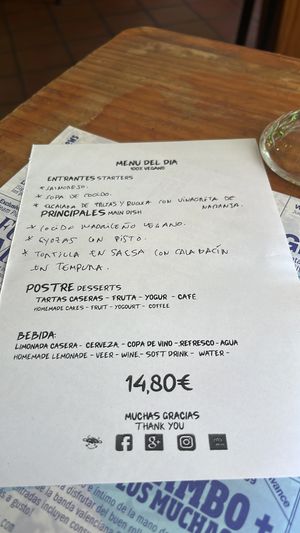 MENU DEL DIA
100% VEGANO
ENTRANTES STARTERS
* SALMOREJO.
* SOPA DE COCIDO.
* ENSALADA DE FRUTAS Y RUCULA CON VINAGRETA DE NARANJA.
PRINCIPALES MAIN DISH
* COCIDO MADRILEÑO VEGANO.
* GYOZAS CON PISTO.
* TORTILLA EN SALSA CON CALABACÍN
EN TEMPURA.
POSTRE DESSERTS
TARTAS CASERAS - FRUTA - YOGUR - CAFE
HOMEMADE CAKES - FRUIT - YOGOURT - COFFEE
BEBIDA:
LIMONADA CASERA - CERVEZA - COPA DE VINO - REFRESCO - AGUA
HOMEMADE LEMONADE - VEER - WINE - SOFT DRINK - WATER -
14,80€
MUCHAS GRACIAS
THANK YOU
f g+
MBO +
LOS MUCHAC